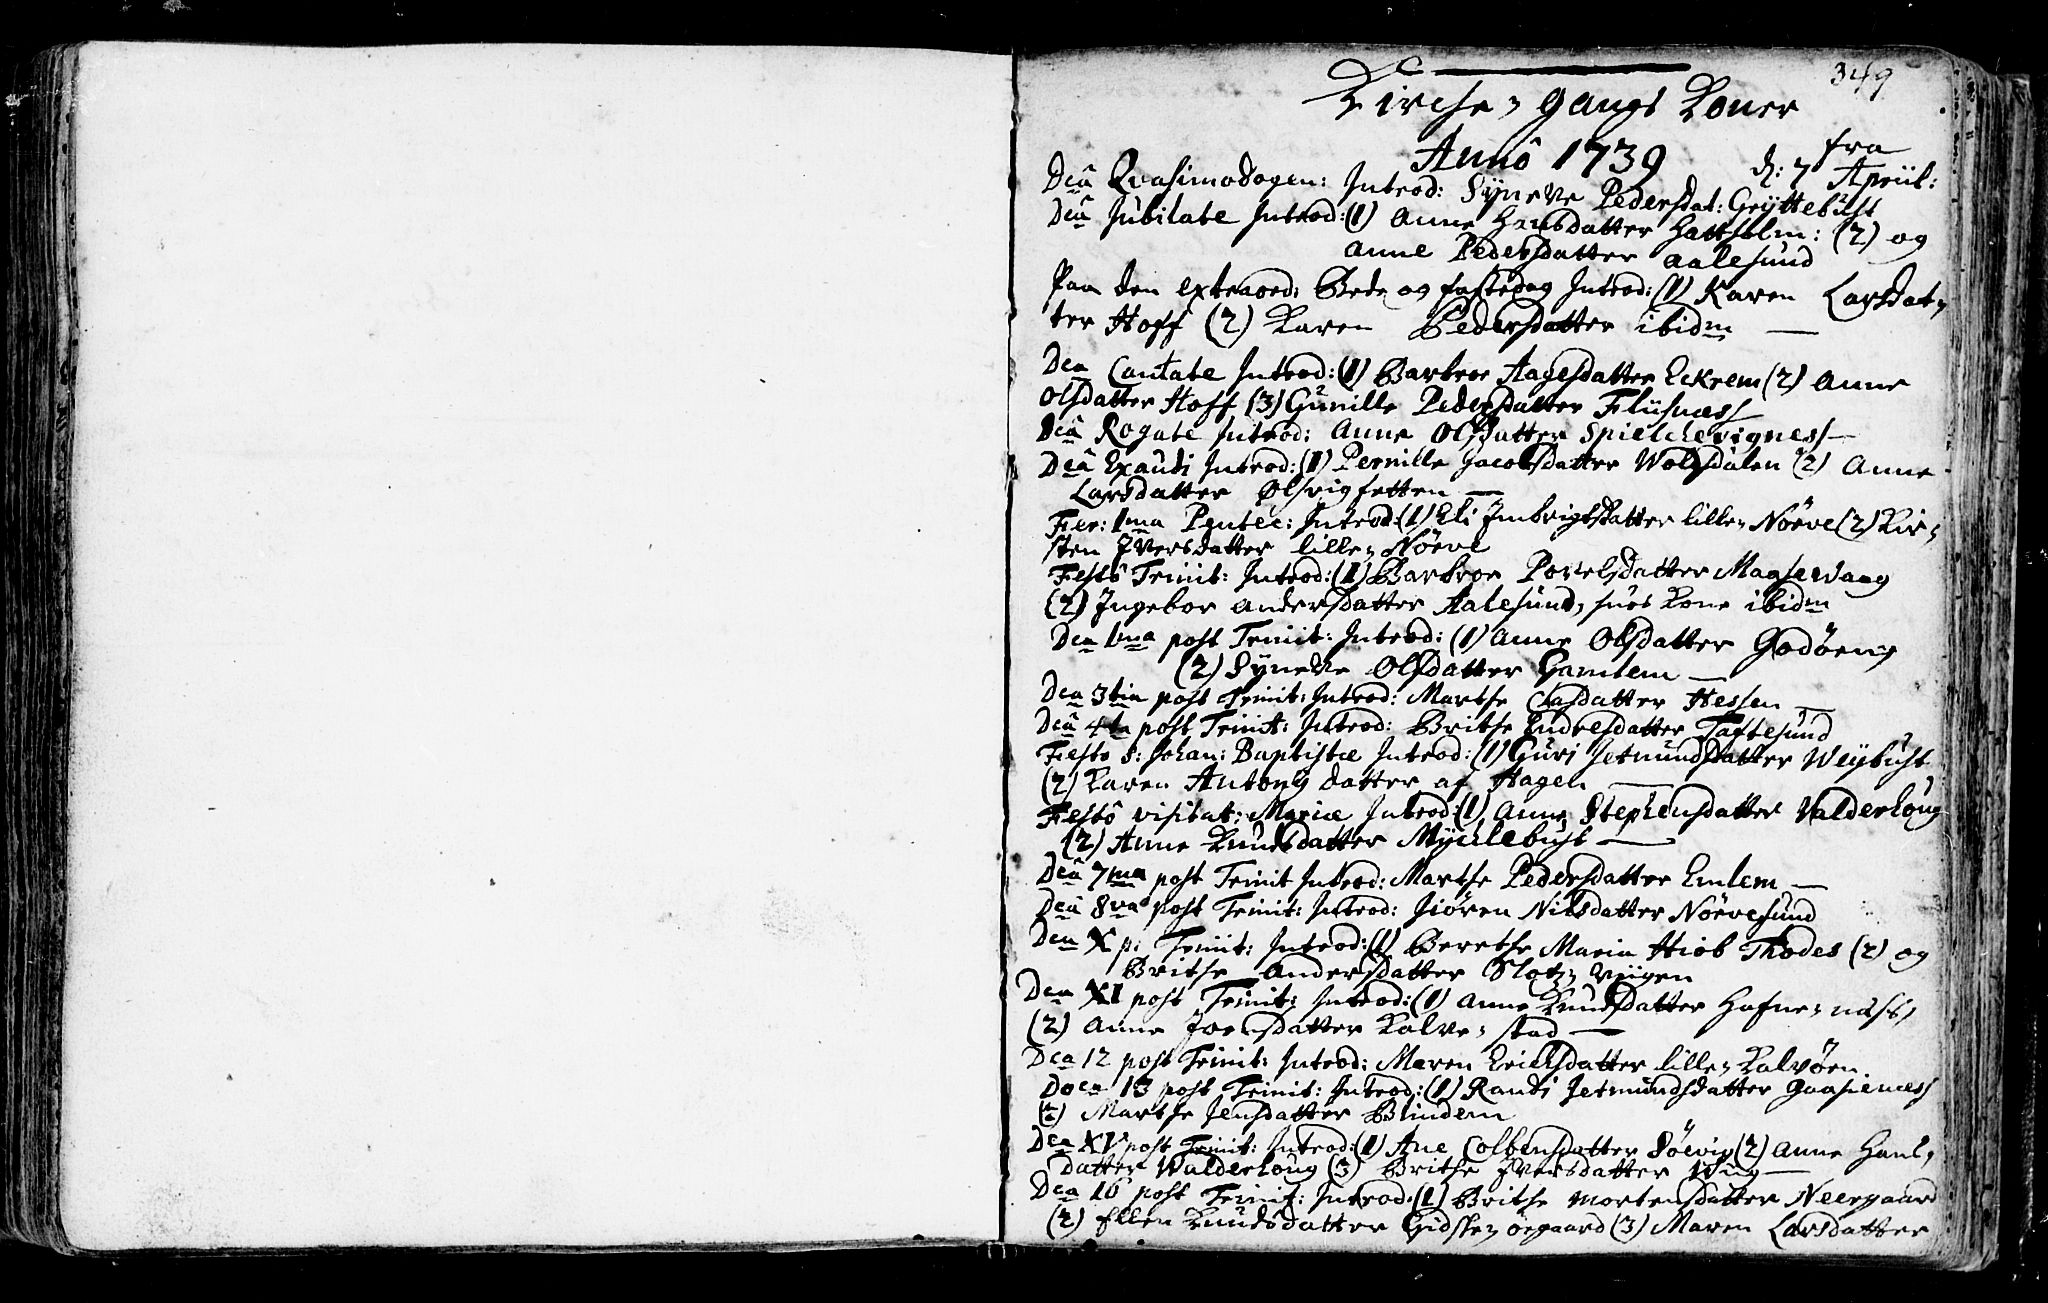 349
Kirche=gangs Koner
Anno 1739 fra
Dca Qvasimodogen: Introd: Syneve Pedersdat: Gryttebust d: 7 Apriil:
Dca Jubilate Introd: (1) Anne Hansdatter Hattholm: (2) og
Anne Pedersdatter Aalesund
Paa den extraord: Bede og fastedag Introd: (1) Karen Larsdat=
ter Hoff (2) Karen Pedersdatter ibidm
Dca Cantate Introd: (1) Barbroe Aagesdatter Eckrem (2) Anne
Olsdatter Hoff (3) Gunille Pedersdatter Fliisness
Dca Rogate Introd: Anne Olsdatter Spielchevigness
Dca Exaudi Introd: (1) Pernille Jacobsdatter Wolsdalen (2) Anne
Larsdatter Olsvigsetten
Fer: 1ma Pentec: Introd: (1) Eli Imbrigtsdatter lille=Nörve (2) Kir=
sten Iversdatter lille=Nörve
Festo Trinit: Introd: (1) Barbroe Povelsdatter Magservaag
(2) Ingebor Andersdatter Aalesund, huus Kone ibidm
Dca 1ma post Trinit: Introd: (1) Anne Olsdatter Godöen,
(2) Syneve Olsdatter Gamlem
Dca 3tia post Trinit: Introd: Marthe Clasdatter Hessen
Dca 4ta post Trinit: Introd: Brithe Endresdatter Taftesund
Festo S: Johan: Baptistæ Introd: (1) Guri Jetmundsdatter Weybust
(2) Karen Antonij datter af Hagen
Festo visitat: Mariæ Introd: (1) Anne Stephensdatter Valderhoug
(2) Anne Knudsdatter Mycklebust
Dca 7ma post Trinit Introd: Marthe Pedersdatter Emlem
Dca 8va post Trinit: Introd: Jiören Nilsdatter Nörvesund
Dca X p: Trinit: Introd: (1) Berethe Maria Hiob Thodes (2) og
Brithe Andersdatter Slotz=Viigen
Dca XI post Trinit: Introd: (1) Anne Knudsdatter Hafne=næss,
(2) Anne Joensdatter Kalve=stad
Dca 12 post Trinit: Introd: Maren Ericksdatter lille=Kalvöen
Doca 13 post Trinit: Introd: (1) Randi Jetmundsdatter Gaasenæss
(2) Marthe Jensdatter Blindem
Dca XV post Trinit: Introd: (1) Ane Colbensdatter Söevig (2) Anne Hans=
datter Walderhoug (3) Brithe Iversdatter
Dca 16 post Trinit: Introd: (1) Brithe Mortensdatter Neergaard
(2) Ellen Knudsdatter Gidske=öegaard (3) Maren Larsdatter